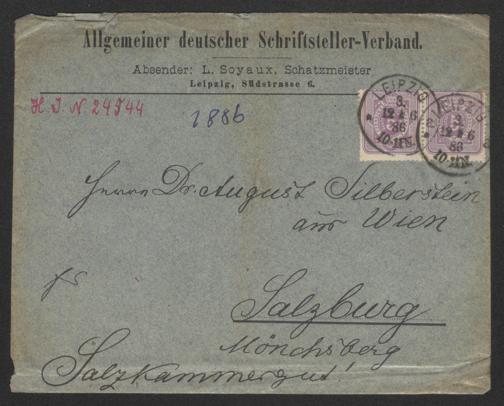 Allgemeiner deutscher Schriftsteller-Verband.
Absender: L. Soyaux, Schatzmeister
Leipzig, Südstrasse 6.
H. I. N. 24544
1886
LEIPZIG
3.
12 6
86
10-11N.
LEIPZIG
3
12 6
86
10-11N.
Herrn Dr. August Silberstein
aus Wien
Salzburg
Mönchsberg
Salzkammergut